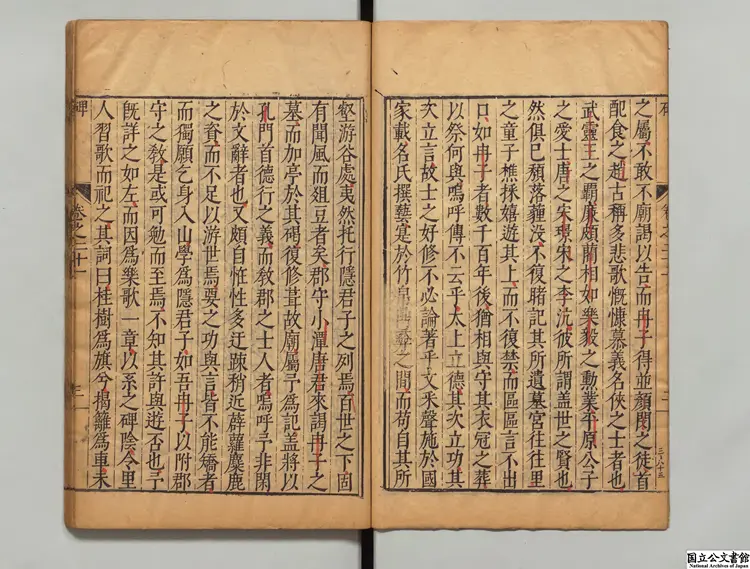 之屬不敢不廟謁以告而冉子得並顏閔之徒首
配食之趙古稱多悲歌慨慷慕義名俠之士者也
武靈王之覇廉頗藺相如樂毅之勳業平原公子
之愛士唐之宋璟宋之李沆彼所謂盖世之賢也
然俱已頽落貍沒不復睹記其所遺墓宮往往里
之童子樵採嬉遊其上而不復禁而區區言不出
口如冉子者數千百年後猶相與守其衣冠之葬
以祭何與嗚呼傳不云乎太上立德其次立功其
次立言故士之好修不必論著乎文采聲施於國
家載名氏撰藝寔於竹帛彝之間而苟自其所
壑游谷處夷然托行隱君子之列焉百世之下固
有聞風而俎豆者矣郡守小潭唐君來謁冉子之
墓而加亭於其碣復修葺故廟屬予爲記盖將以
孔門首德行之義而敎郡之士人者嗚呼予非閑
於文辭者也又頗自恠性多迂疎稍近薜蘿麋鹿
之而不足以游世焉要之功與言皆不能矯者
而獨願乞身入山學爲隱君子如吾冉子以附郡
守之敎是或可勉而至焉不知其許與遊否也予
旣詳之如左而因爲樂歌一章以系之碑陰令里
人習歌而祀之其詞曰桂樹爲旗兮揭籬爲車未
碑
卷之二十一
三
国立公文書館
National Archives of Japan